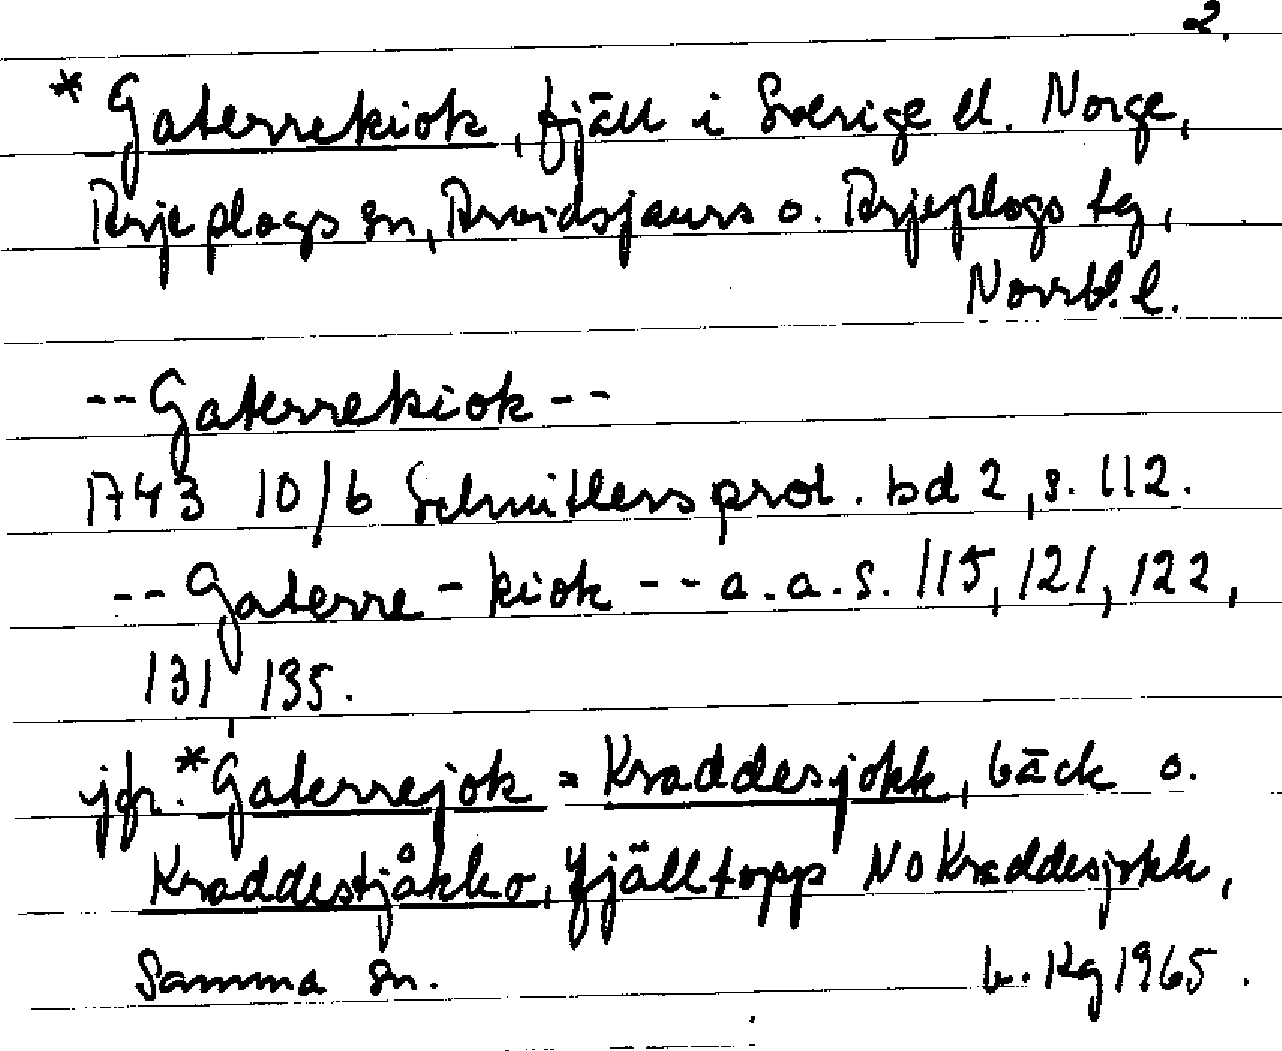 2.
* Gaterrekiok, fjäll i Sverige el. Norge,
Arjeplogs sn, Arvidsjaurs o. Arjeplogs tg,
Norrb. l.
-- Gaterrekiok --
1743 10/6 Schnitlers prot. bd 2, s. 112.
-- Gaterre - kiok -- a.a.s. 115, 121, 122,
131, 135.
jfr. *Gaterrejok = Kraddesjokk, bäck o.
Kraddestjåkko, fjälltopp NO Kraddesjokk,
Samma sn.
b. Kg 1965.